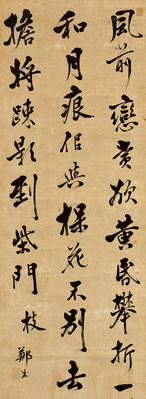 風前戀賞欲黃昏攀折一
和月痕與楳花不別去
擔將踈影到柴門 枝 鄭